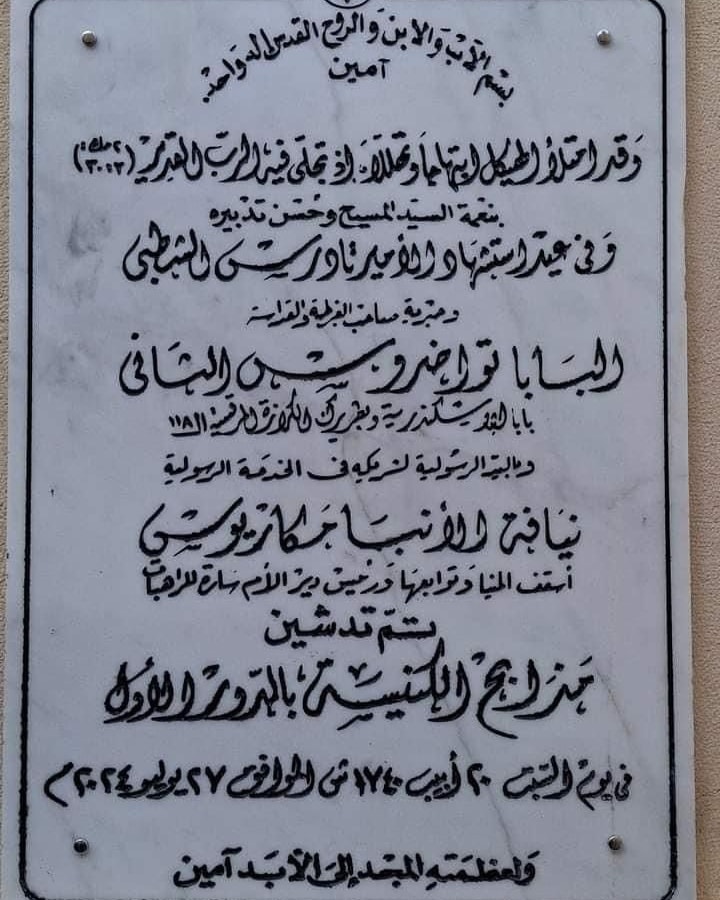 بسم الآب والابن والروح القدس اله واحد
آمين
وقد امتلأ الهيكل ابتهاجاً وتهللاً، إذ تجلى فيه الرب القدير (٢مك ٣٠:٣)
بنعمة السيد المسيح وحسن تدبيره
وفى عيد استشهاد الأمير تادرس الشطبى
وحبرية صاحب الغبطة والقداسة
البابا تواضروس الثانى
بابا الإسكندرية وبطريرك الكرازة المرقسية الـ١١٨
وباليد الرسولية لشريكه فى الخدمة الرسولية
نيافة الأنبا مكاريوس
أسقف المنيا وتوابعها ورئيس دير الأم سارة للراهبات
تم تدشين
مذابح الكنيسة بالدور الأول
فى يوم السبت ٢٠ أبيب ١٧٤٠ش الموافق ٢٧ يوليو ٢٠٢٤م
ولعظمته المجد إلى الأبد آمين